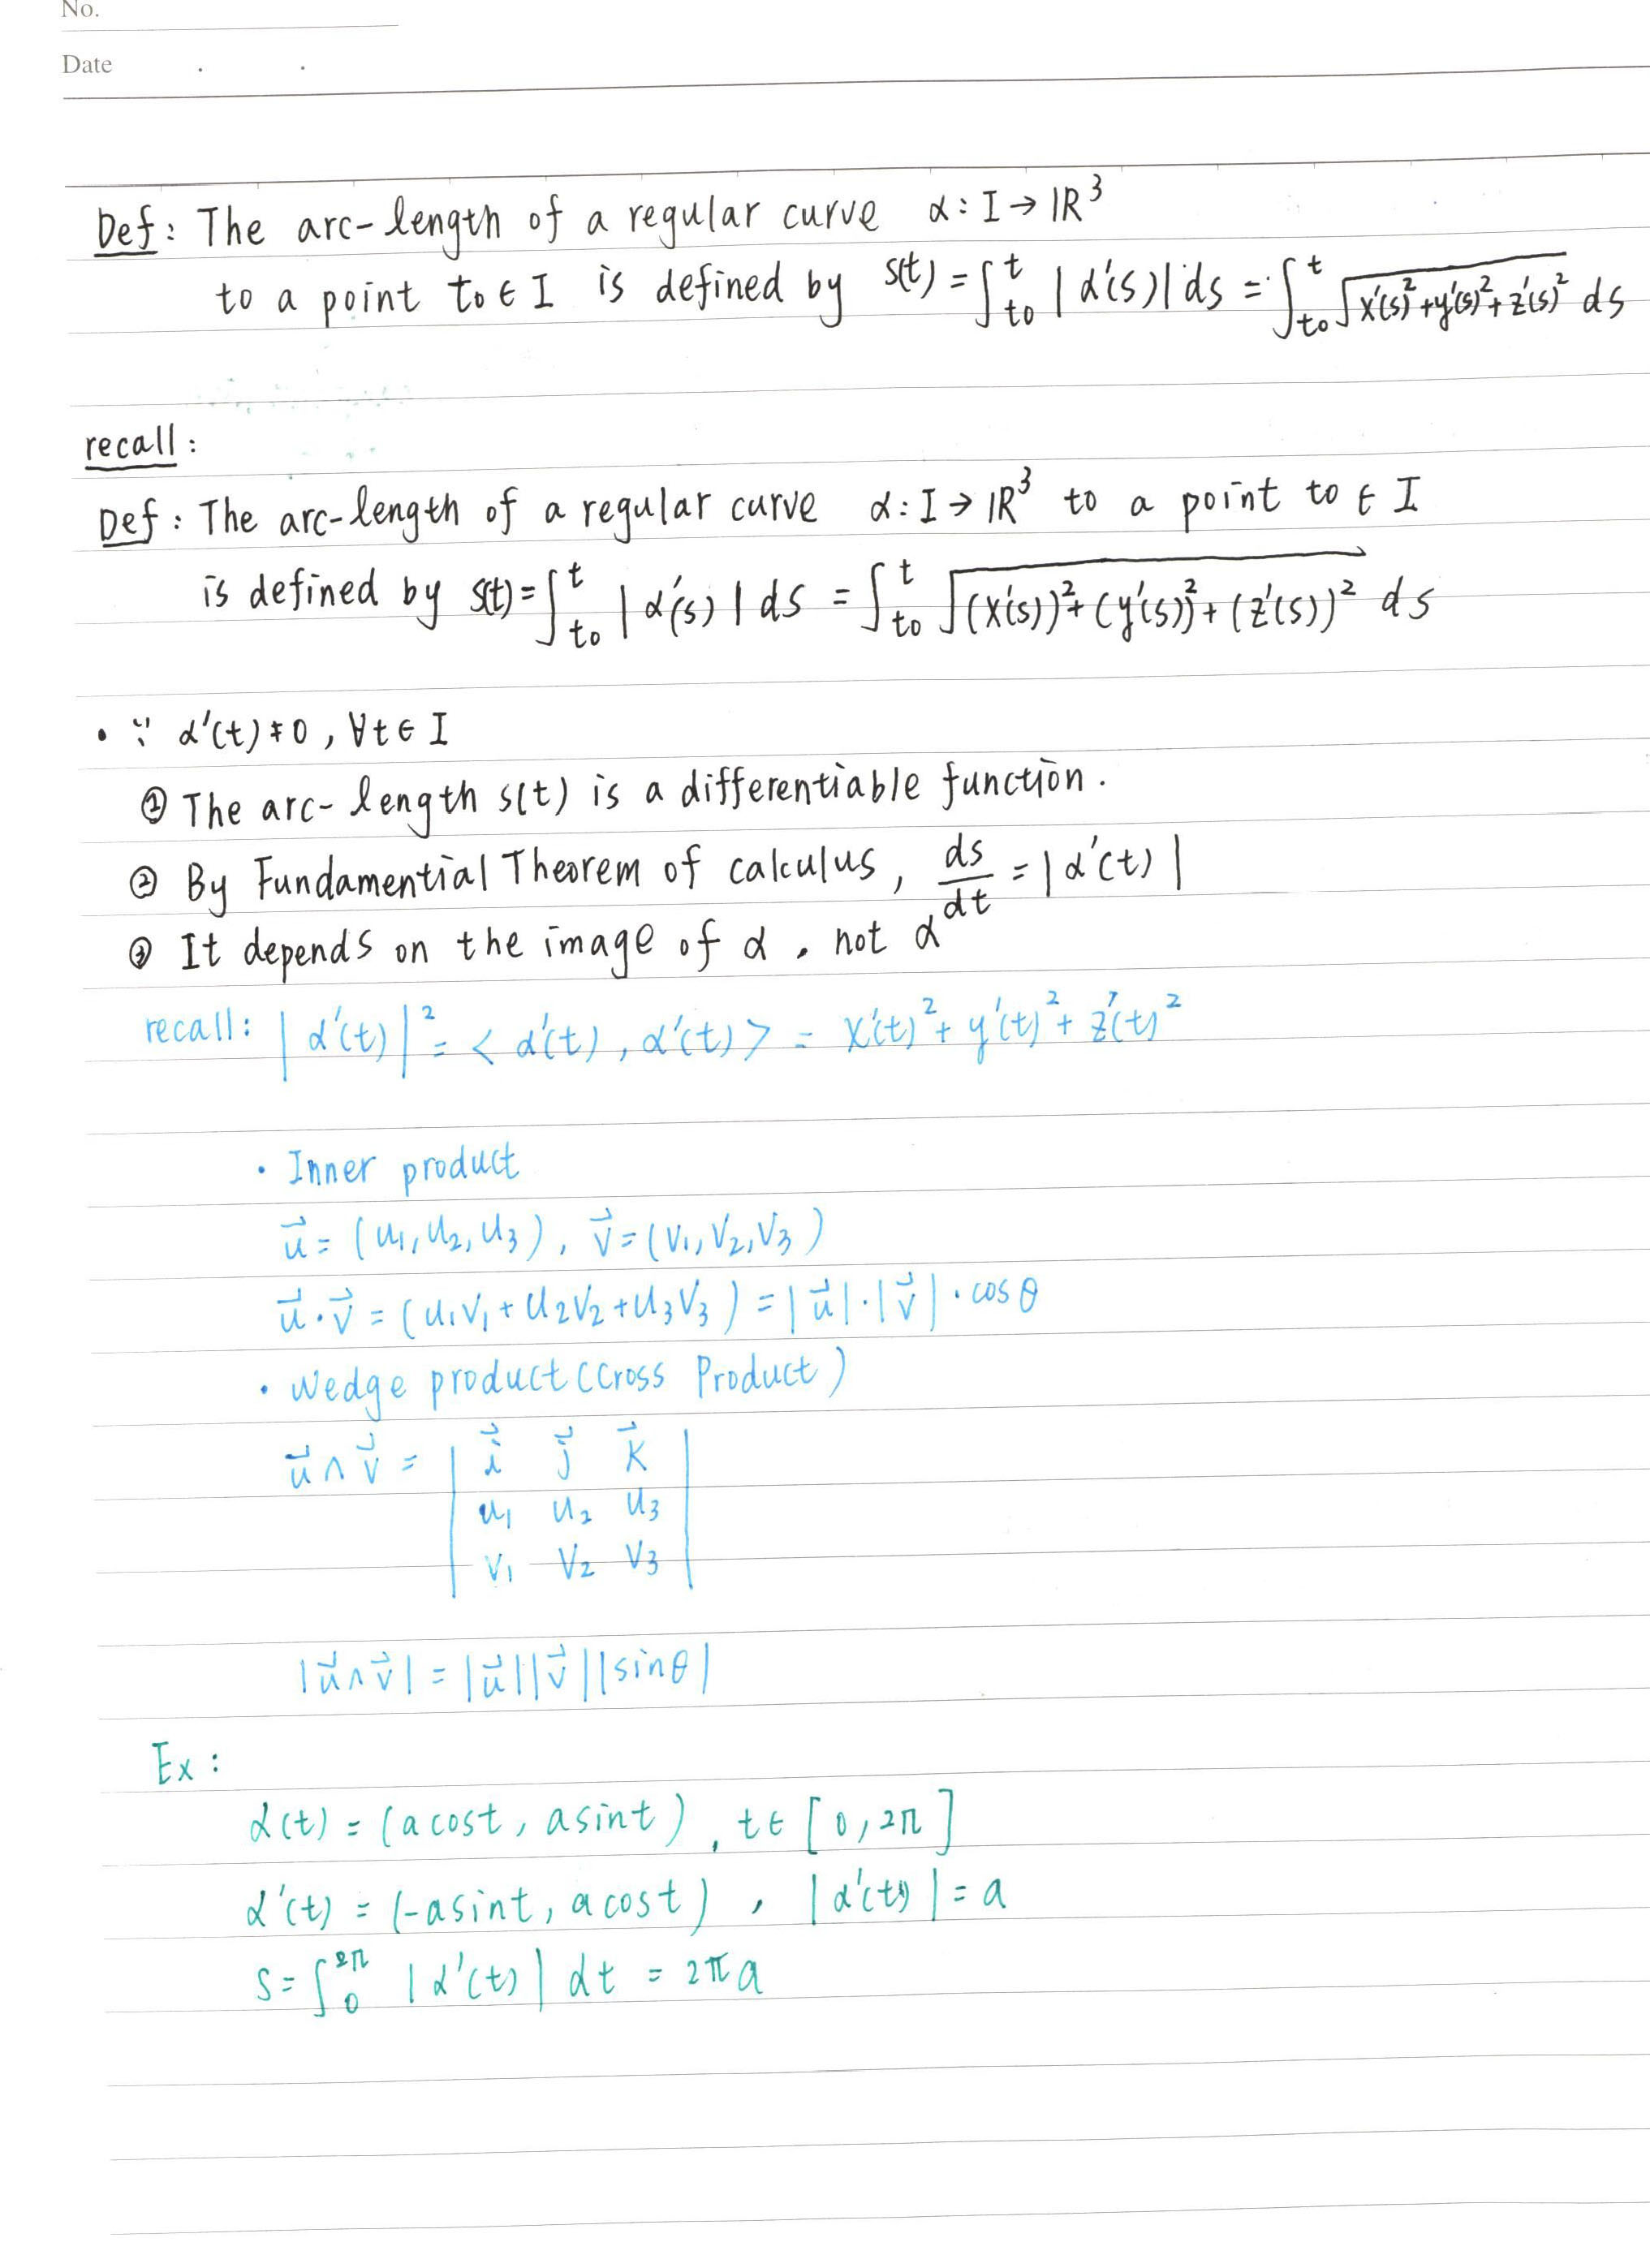 No.
Date . .
Def: The arc-length of a regular curve α: I → ℝ³
to a point t₀ ∈ I is defined by s(t) = ∫_{t₀}^{t} |α'(s)| ds = ∫_{t₀}^{t} √(x'(s)² + y'(s)² + z'(s)²) ds
recall:
Def: The arc-length of a regular curve α: I → ℝ³ to a point t₀ ∈ I
is defined by s(t) = ∫_{t₀}^{t} |α'(s)| ds = ∫_{t₀}^{t} √((x'(s))² + (y'(s))² + (z'(s))²) ds
• ∵ α'(t) ≠ 0, ∀t ∈ I
① The arc-length s(t) is a differentiable function.
② By Fundamential Theorem of calculus, ds/dt = |α'(t)|
③ It depends on the image of α, not α
recall: |α'(t)|² = <α'(t), α'(t)> = x'(t)² + y'(t)² + z'(t)²
• Inner product
u⃗ = (u₁, u₂, u₃), v⃗ = (v₁, v₂, v₃)
u⃗ · v⃗ = (u₁v₁ + u₂v₂ + u₃v₃) = |u⃗| · |v⃗| · cos θ
• Wedge product (Cross Product)
u⃗ ∧ v⃗ = | i⃗ j⃗ k⃗ |
| u₁ u₂ u₃ |
| v₁ v₂ v₃ |
|u⃗ ∧ v⃗| = |u⃗||v⃗||sin θ|
Ex:
α(t) = (a cos t, a sin t), t ∈ [0, 2π]
α'(t) = (-a sin t, a cos t), |α'(t)| = a
S = ∫_{0}^{2π} |α'(t)| dt = 2πa